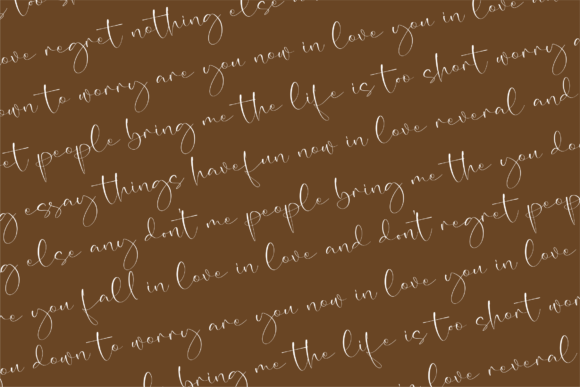 too
ove regret nothing else
own to worry are you now in love you in love
et people bring me the life is too short worry
g essay things have fun now in love reveral and
g else any don't me people bring me the you do
e you fall in love in love and don't regret peop
ou down to worry are you now in love you in love
bring me the life is too short wor
love reveral